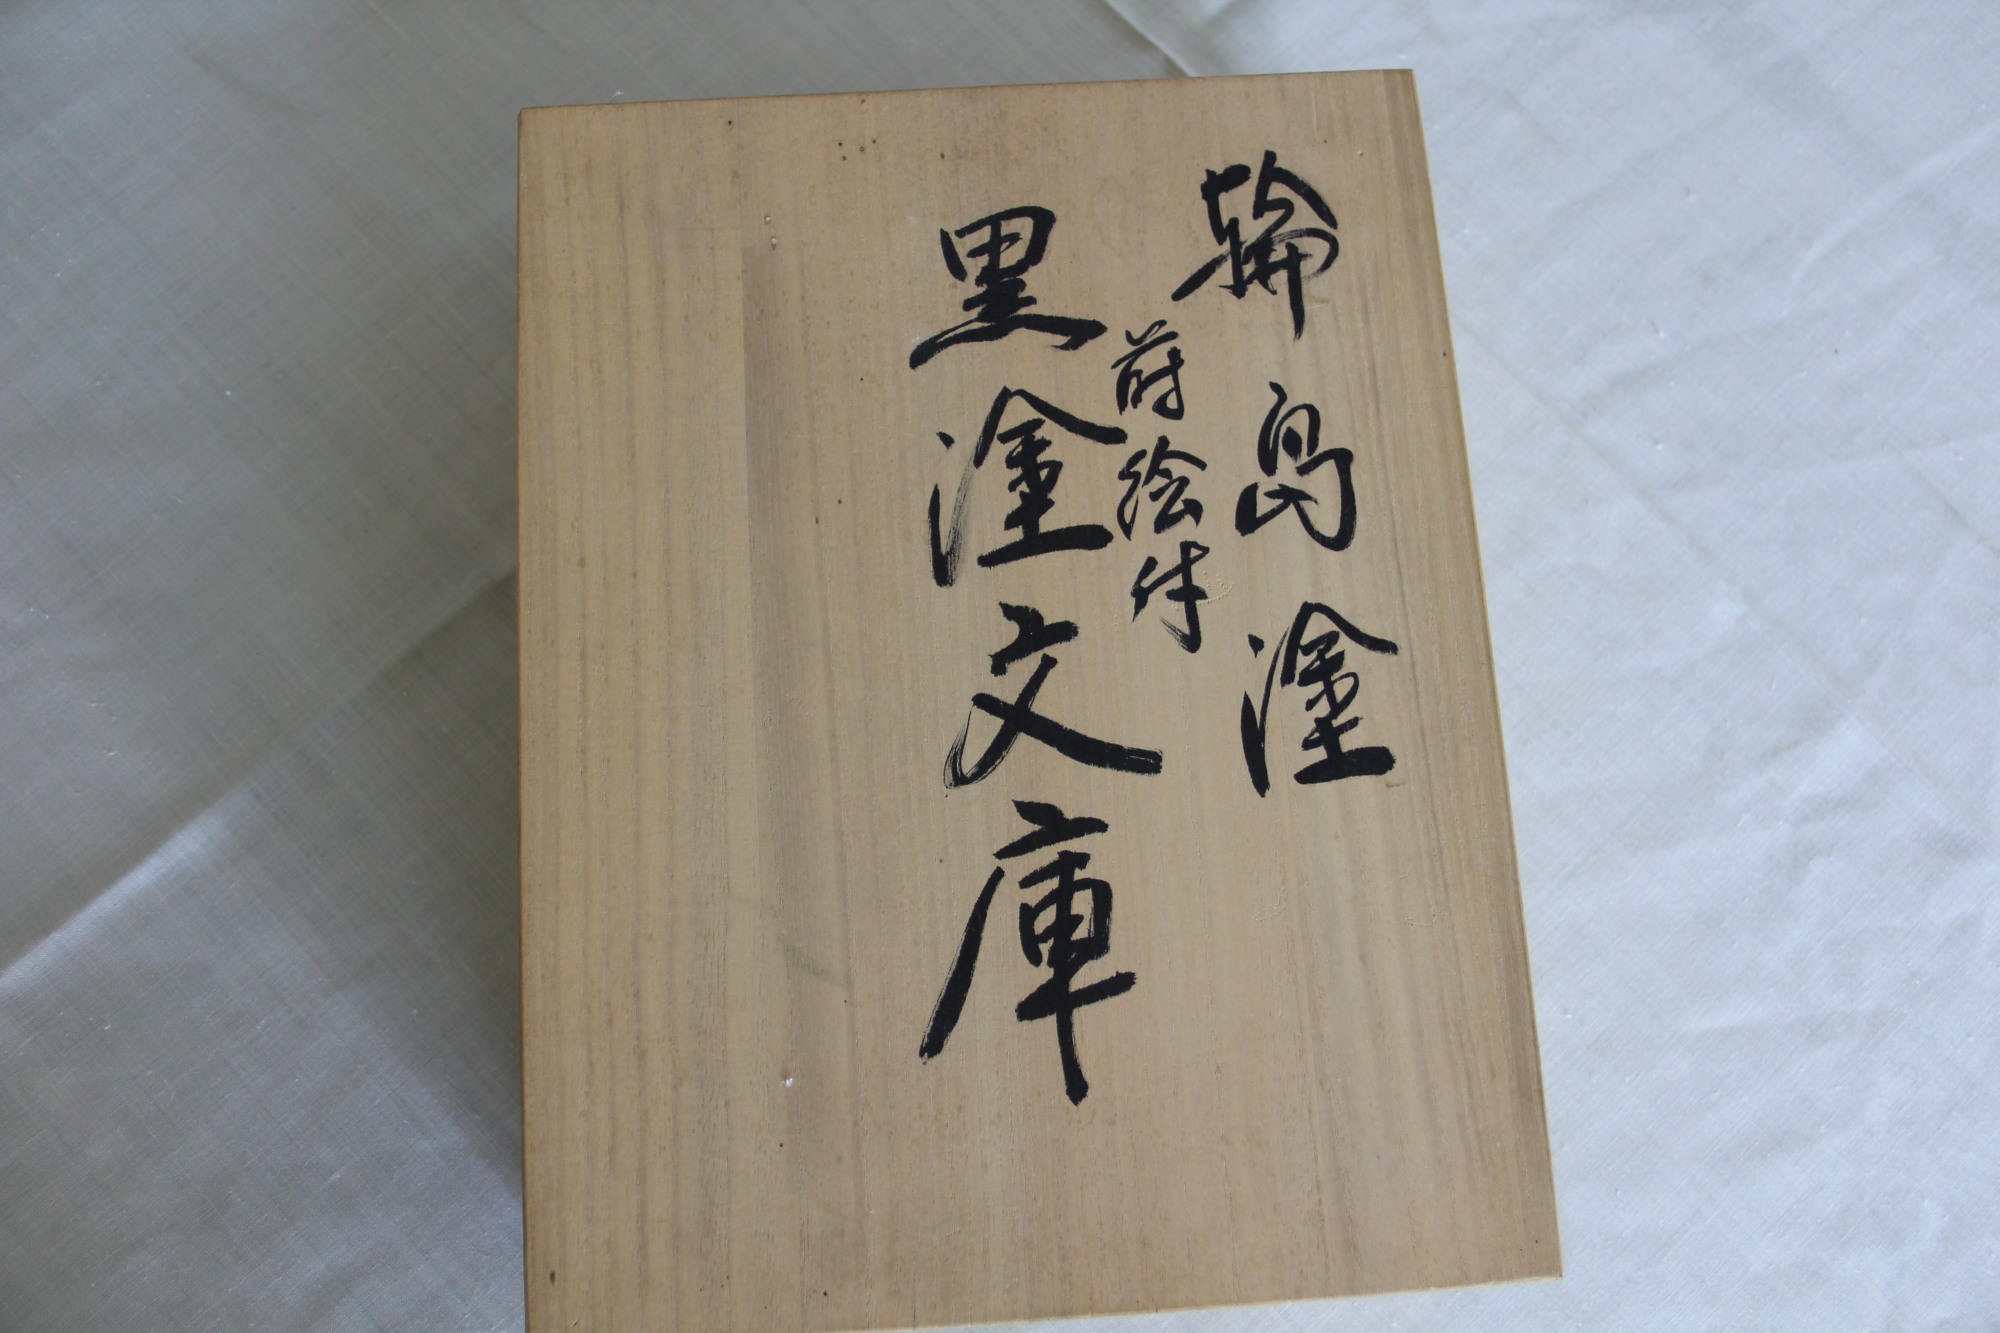 輪島塗
蒔絵付
黒塗文庫